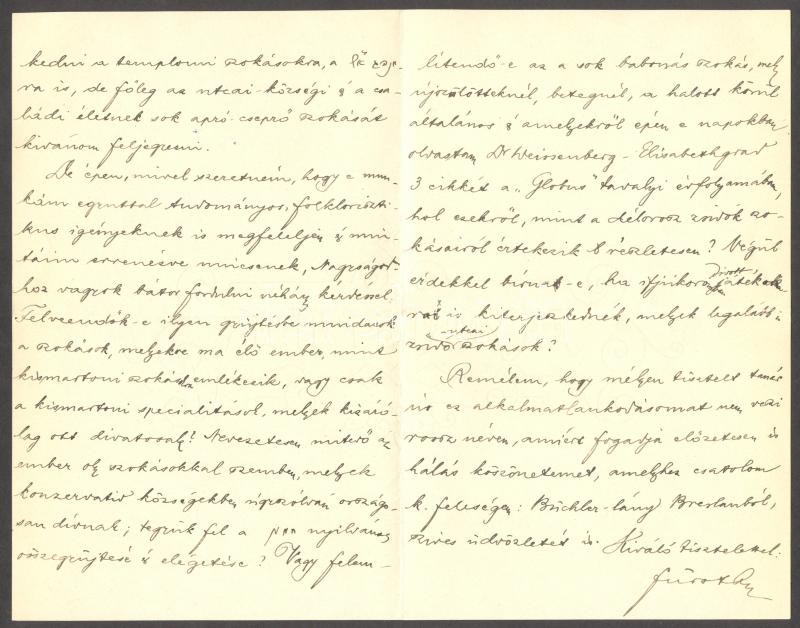 kedni a templomi szokásokra, a
ra is, de főleg az utcai-községi s a csa-
ládi életnek sok apró-cseprő szokását
kivánom feljegyezni.
De épen, mivel szeretném, hogy e mun-
kám egyuttal tudományos, folkloriszti-
kus igényeknek is megfeleljen s min-
táim erre nézve nincsenek, Nagyságod-
hoz vagyok bátor fordulni néhány kérdéssel.
Felveendők-e ilyen gyüjtésbe mindazok
a szokások, melyekre ma élő ember, mint
kismartoni szokásra emlékezik, vagy csak
a kismartoni specialitások, melyek kizáró-
lag ott divatosak? Nevezetesen mitevő az
ember oly szokásokkal szemben, melyek
konzervativ községekben úgyszólván országo-
san dívnak; tegyük fel a חמץ nyilvános
összegyüjtése s elégetése? Vagy felem-
lítendő-e az a sok babonás szokás, mely
újszülötteknél, betegnél, a halott körül
általános s amelyekről épen e napokban
olvastam Dr Weissenberg-Elisabethgrad
3 cikkét a „Globus” tavalyi évfolyamában,
hol ezekről, mint a délorosz zsidók szo-
kásairól értekezik részletesen? Végül
érdekkel bírnak-e, ha ifjúkoromban divott játékok-
ra is kiterjeszkednék, melyek legalább is
zsidó utcai szokások?
Remélem, hogy mélyen tisztelt tanár
úr ez alkalmatlankodásomat nem veszi
rossz néven, amiért fogadja előzetesen is
hálás köszönetemet, amelyhez csatolom
k. feleségem: Büchler-lány Breslauból,
szives üdvözletét is. Kiváló tisztelettel:
Fürst